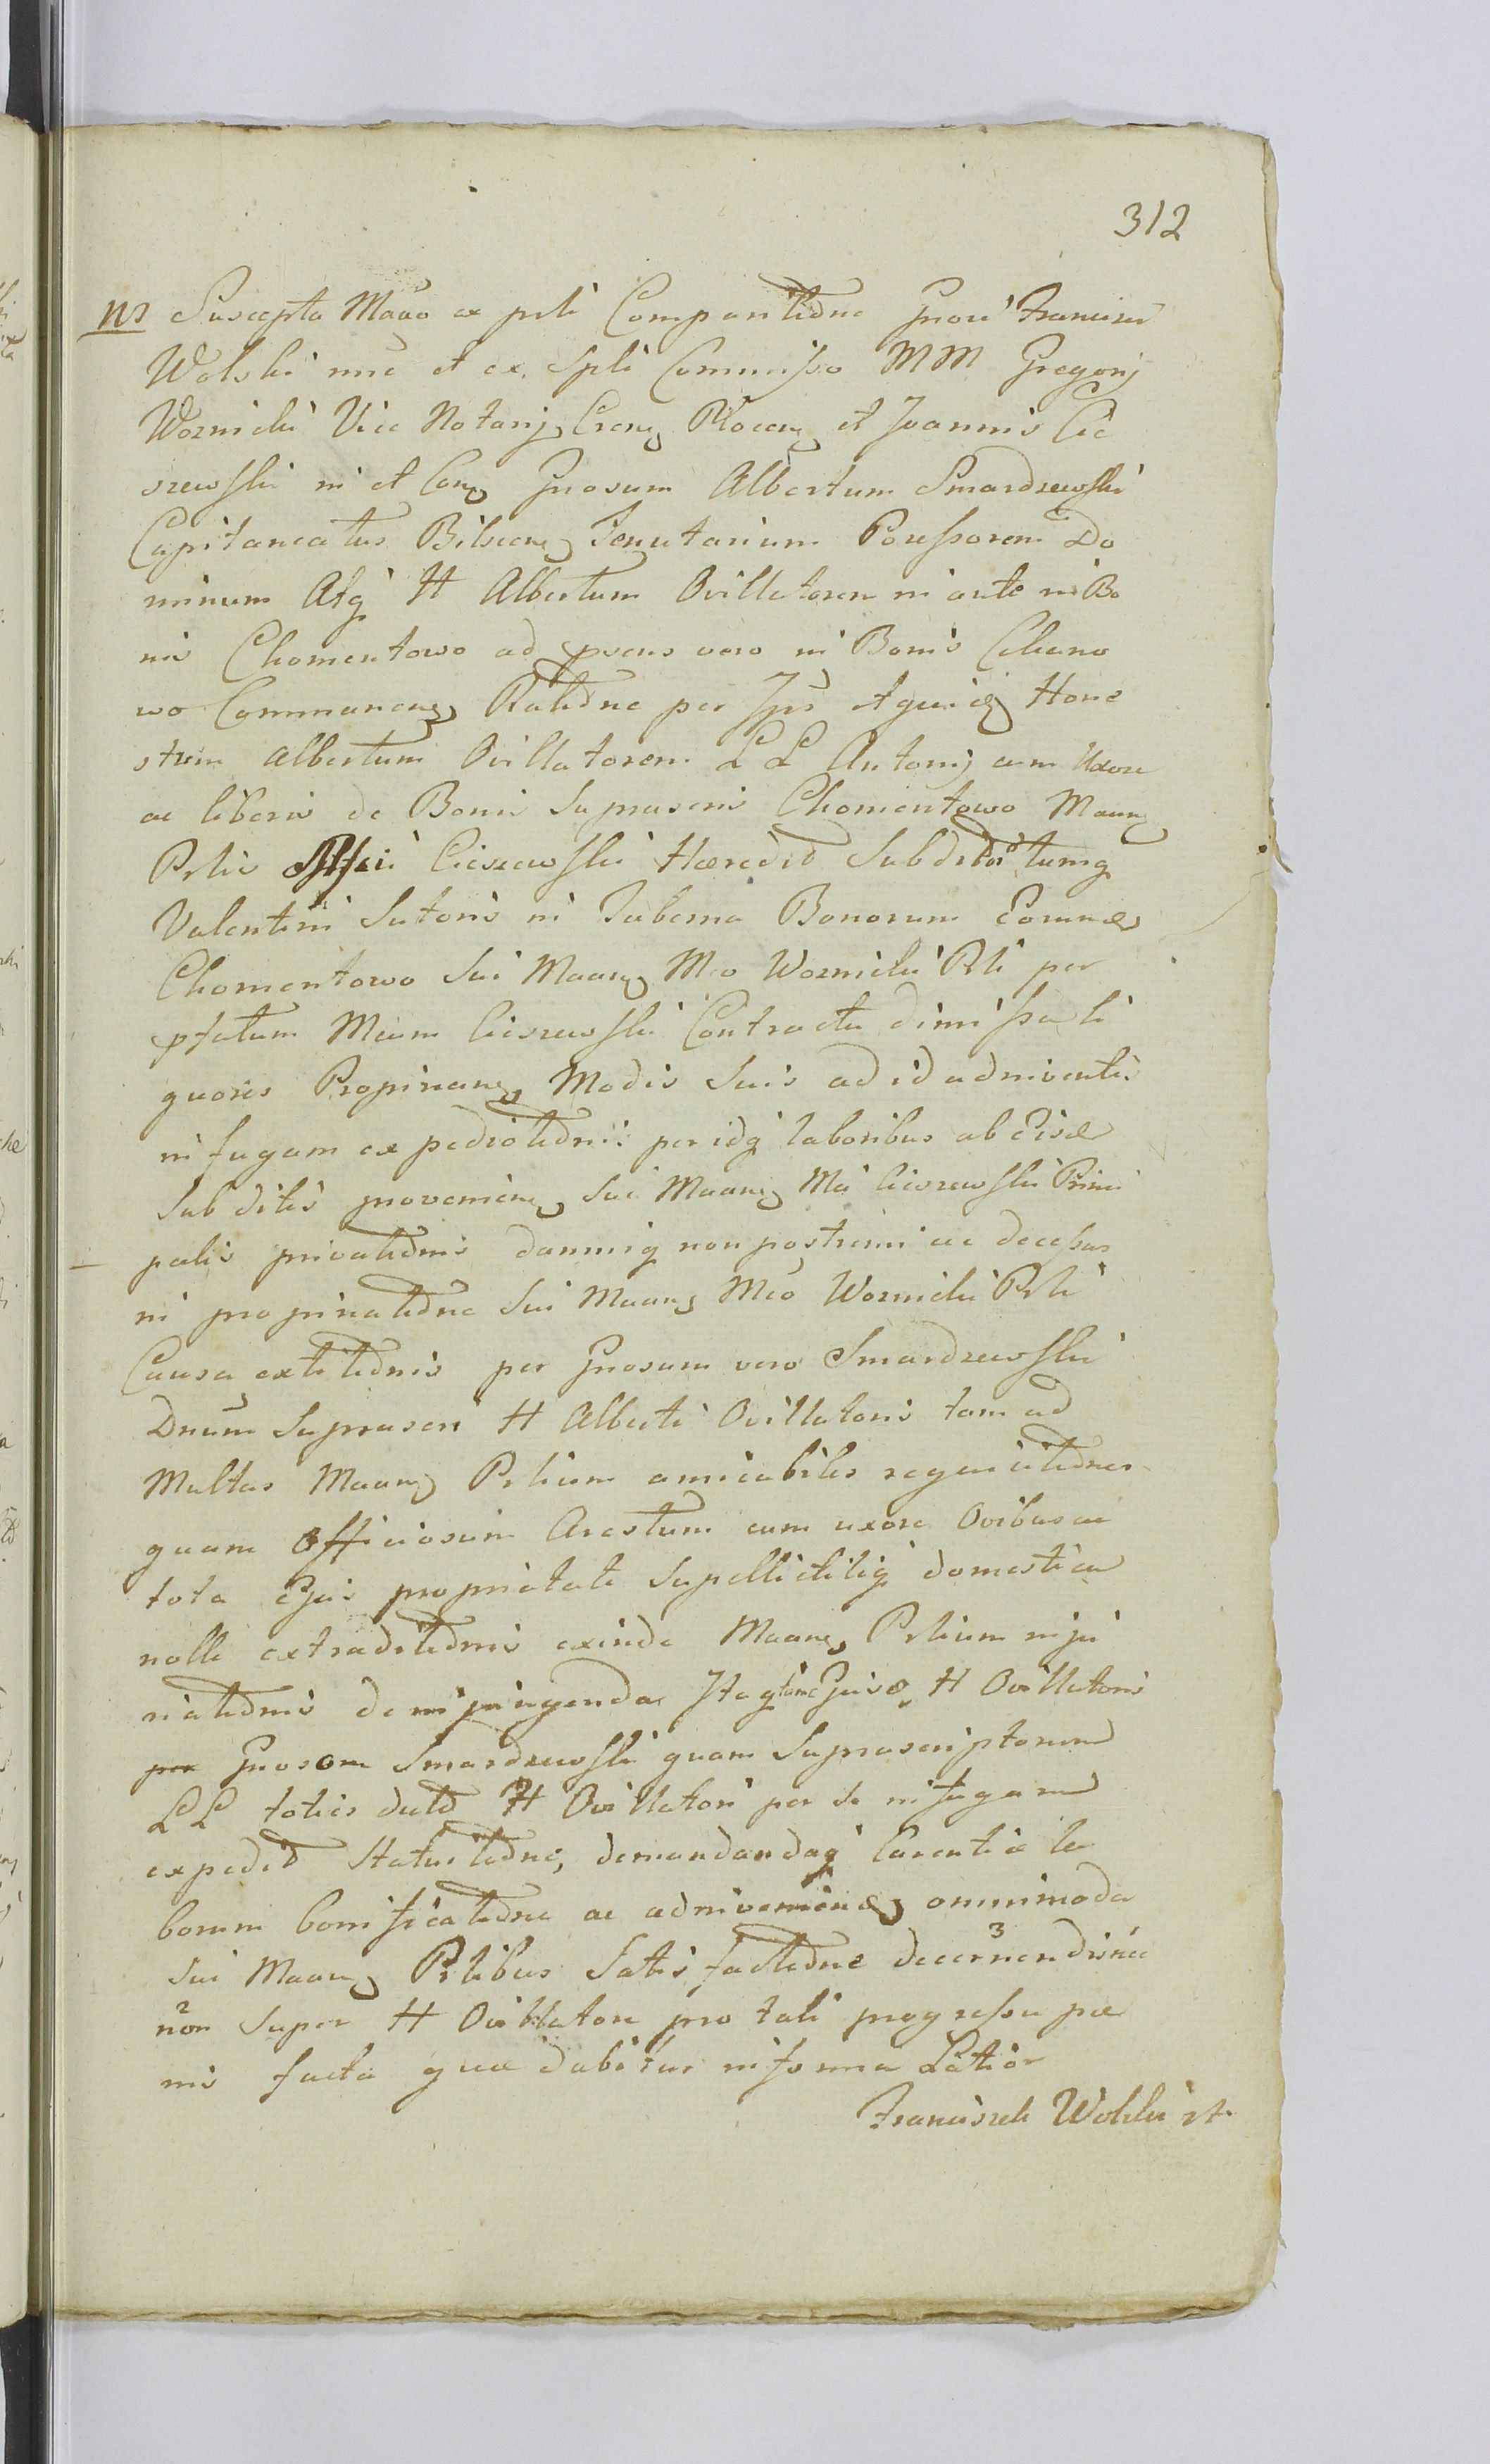 312
Suscepta Mano ex prli Comparitione Gnosi Francisci
Wolski mne et ex spli Commisso MM Gregorij
Woznicki Vice Notarij Crens Plocens et Joannis Cie
szewski in et Cons Gnosum Albertum Smardzewski
Capitaneatus Bilscens Tenutarium Possessorem Do
minum Atq H Albertum Ovillatorem in ante in Bo
nis Chomentowo ad psens vero in Bonis
wo Commanens Ratione per Ips Honе
stum Albertum Ovillatorem LL Antonij cum Uxore
ac liberis de Bonis suprascris Chomentowo Maans
Prlis Cieszewski Hæredit Subditor tumq
Valentini Sutoris in Taberna Bonorum Eorumd
Chomentowo Sui Maans Mco Woznicki Prli per
pfatum Mcum Cieszewski Contractu dimissa li
quores Propinans Modis suis ad id adinventis
in fugam expeditionis per idq laboribus ab Eisd
Subditis proveniens sui Maans Mci Cieszewski Princi
palis privationis damniq non postremi ac decessus
in propinatione Sui Maans Mco Woznicki Prli
Causa extitionis per Gnosum vero Smardzewski
Dnum Suprascri H Alberti Ovillatoris tam ad
Multas Maans Prlium amicabiles requisitiones
quam officiosum Arestum cum uxore Ovibus ac
tota Ejus proprietate Supellictiliq domestica
nolle extraditionis exinde Maans Prlium inju
riationis de inpingenda Itaq tam Ejusd H Ovillatoris
per Gnosom Smardzewski quam Suprascriptorum
LL toties dicto H Ovillatori per se in fugam
expedit Statuitione, demandandaq Carentiæ la
borum bonificatione ac adinveniend omnimoda
Sui Maans Prlibus Satisfactione decernendisúe
3
2
non super H Ovillatore pro tali progressu pæ
nis facta quæ dabitur in forma Latior
Franciszek Wolski